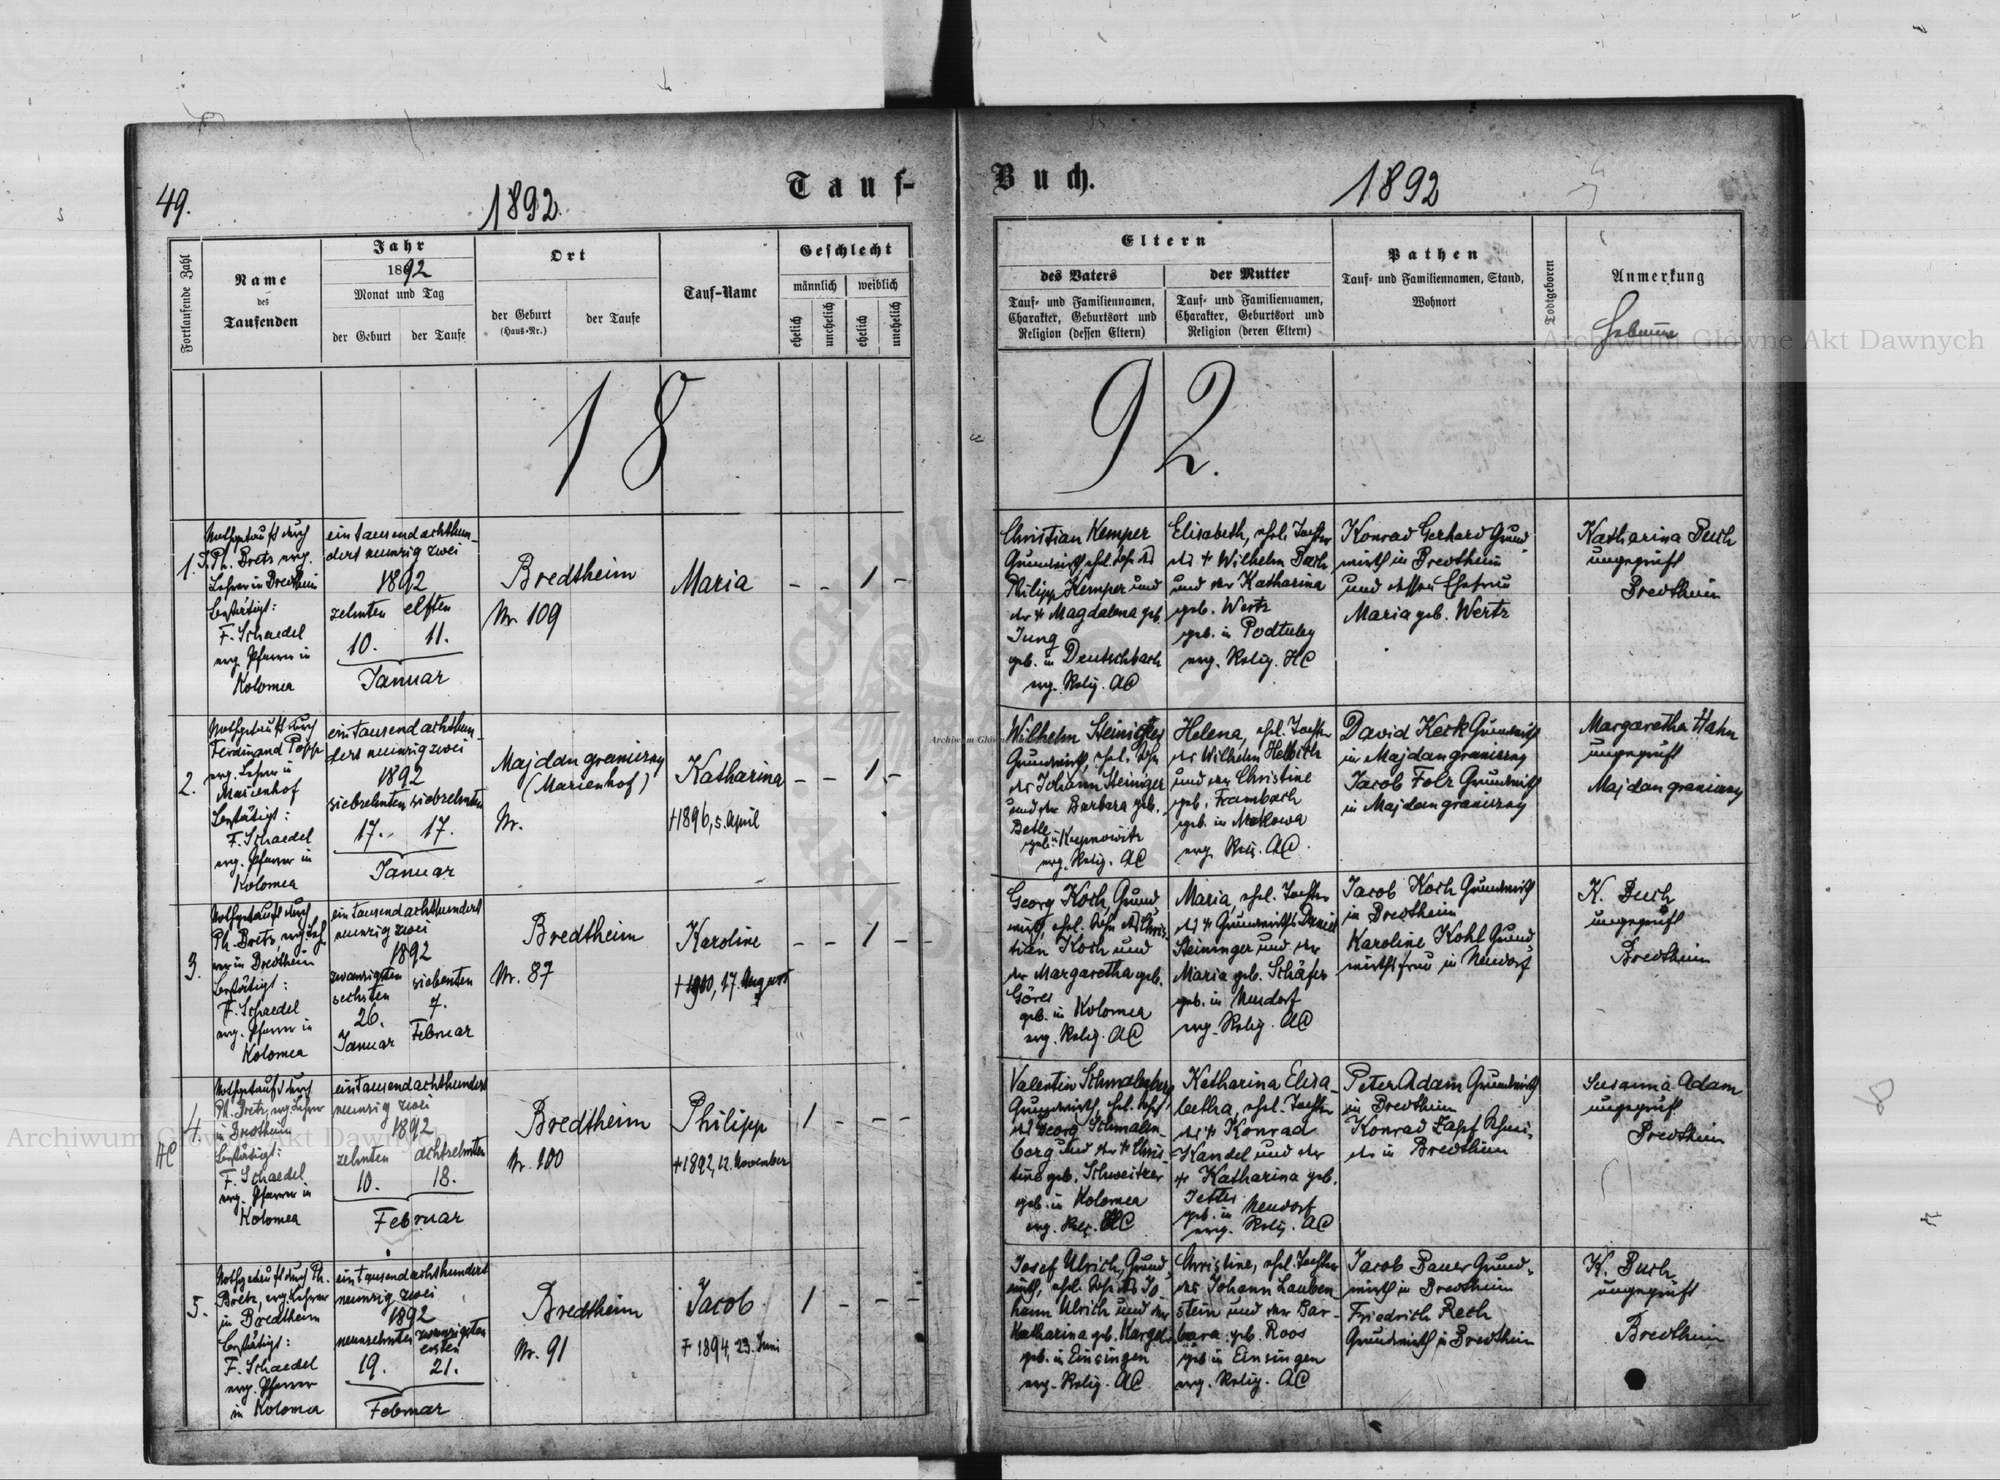 49.
1892.
Tauf-
Buch.
1892
Fortlaufende Zahl
Name
des
Taufenden
Jahr
1892
Monat und Tag
der Geburt
der Taufe
Ort
der Geburt
(Haus-Nr.)
der Taufe
Tauf-Name
Geschlecht
männlich
weiblich
ehelich
unehelich
ehelich
unehelich
Eltern
des Vaters
Tauf- und Familiennamen,
Charakter, Geburtsort und
Religion (dessen Eltern)
der Mutter
Tauf- und Familiennamen,
Charakter, Geburtsort und
Religion (deren Eltern)
Pathen
Tauf- und Familiennamen, Stand,
Wohnort
Todtgeboren
Anmerkung
18
92.
1.
Nothgetauft durch
Ph. Bretz evg.
Lehrer in Bredtheim
bestätigt:
F. Schaedel
evg. Pfarrer in
Kolomea
eintausendachthun-
dert neunzig zwei
1892
zehnten elften
10. 11.
Januar
Bredtheim
Nr. 109
Maria
- - 1 -
Christian Kemper
Grundwirth, ehel. Sohn des
Philipp Kemper und
der + Magdalena geb.
Jung
geb. in Deutschbach
evg. Relig. AC
Elisabeth, ehel. Tochter
des + Wilhelm Bach
und der Katharina
geb. Wertz
geb. in
evg. Relig. HC
Konrad Gerhard Grund-
wirth in Bredtheim
und dessen Ehefrau
Maria geb. Wertz
Katharina Buch
ungeprüft
Bredtheim
2.
Nothgetauft durch
Ferdinand Popp
evg. Lehrer in
Marienhof
bestätigt:
F. Schaedel
evg. Pfarrer in
Kolomea
eintausendachthun-
dert neunzig zwei
1892
siebzehnten siebzehnten
17. 17.
Januar
Majdan graniczny
(Marienhof)
Nr.
Katharina
+ 1896, 5. April
- - 1 -
Wilhelm Steiniger
Grundwirth, ehel. Sohn
des Johann Steiniger
und der Barbara geb.
geb. in
evg. Relig. AC
Helena, ehel. Tochter
des Wilhelm
und der Christine
geb. Frambach
geb. in Mogliowa
evg. Relig. AC
David Keck Grundwirth
in Majdan graniczny
Jacob Folz Grundwirth
in Majdan graniczny
Margaretha Hahn
ungeprüft
Majdan graniczny
3.
Nothgetauft durch
Ph. Bretz, evg. Leh-
rer in Bredtheim
bestätigt:
F. Schaedel
evg. Pfarrer in
Kolomea
eintausendachthundert
neunzig zwei
1892
zwanzigsten siebenten
sechsten
26. 7.
Januar Februar
Bredtheim
Nr. 87
Karoline
+ 1900, 17. August
- - 1 -
Georg Koch, Grund-
wirth, ehel. Sohn des Chris-
tian Koch und
der Margaretha geb.
Göres
geb. in Kolomea
evg. Relig. AC
Maria, ehel. Tochter
des + Grundwirths Daniel
Steininger und der
Maria geb. Schäfer
geb. in Neudorf
evg. Relig. AC
Jacob Koch Grundwirth
in Bredtheim
Karoline Kohl Grund-
wirthsfrau in Neudorf
K. Buch
ungeprüft
Bredtheim
4.
HC
Nothgetauft durch
Ph. Bretz, evg. Lehrer
in Bredtheim
bestätigt:
F. Schaedel
evg. Pfarrer in
Kolomea
eintausendachthundert
neunzig zwei
1892
zehnten achtzehnten
10. 18.
Februar
Bredtheim
Nr. 100
Philipp
+ 1892, 12. November
1 - - -
Valentin Schmalenberg
Grundwirth, ehel. Sohn
des Georg Schmalen-
berg und der + Chris-
tine geb. Schweitzer
geb. in Kolomea
evg. Relig. HC
Katharina Elisa-
betha, ehel. Tochter
des + Konrad
Kandel und der
+ Katharina geb.
Jetter
geb. in Neudorf
evg. Relig. AC
Peter Adam Grundwirth
in Bredtheim
Konrad Zapf Schnei-
der in Bredtheim
Susanna Adam
ungeprüft
Bredtheim
5.
Nothgetauft durch Ph.
Bretz, evg. Lehrer
in Bredtheim
bestätigt:
F. Schaedel
evg. Pfarrer
in Kolomea
eintausendachthundert
neunzig zwei
1892
neunzehnten zwanzigsten
ersten
19. 21.
Februar
Bredtheim
Nr. 91
Jacob
+ 1894, 23. Juni
1 - - -
Josef Ulrich, Grund-
wirth, ehel. Sohn des Jo-
hann Ulrich und der
Katharina geb.
geb. in Einsingen
evg. Relig. AC
Christine, ehel. Tochter
des Johann Lauben-
stein und der Bar-
bara geb. Roos
geb. in Einsingen
evg. Relig. AC
Jacob Bauer Grund-
wirth in Bredtheim
Friedrich Rech
Grundwirth in Bredtheim
K. Buch
ungeprüft
Bredtheim
Archiwum Główne Akt Dawnych
Archiwum Główne Akt Dawnych